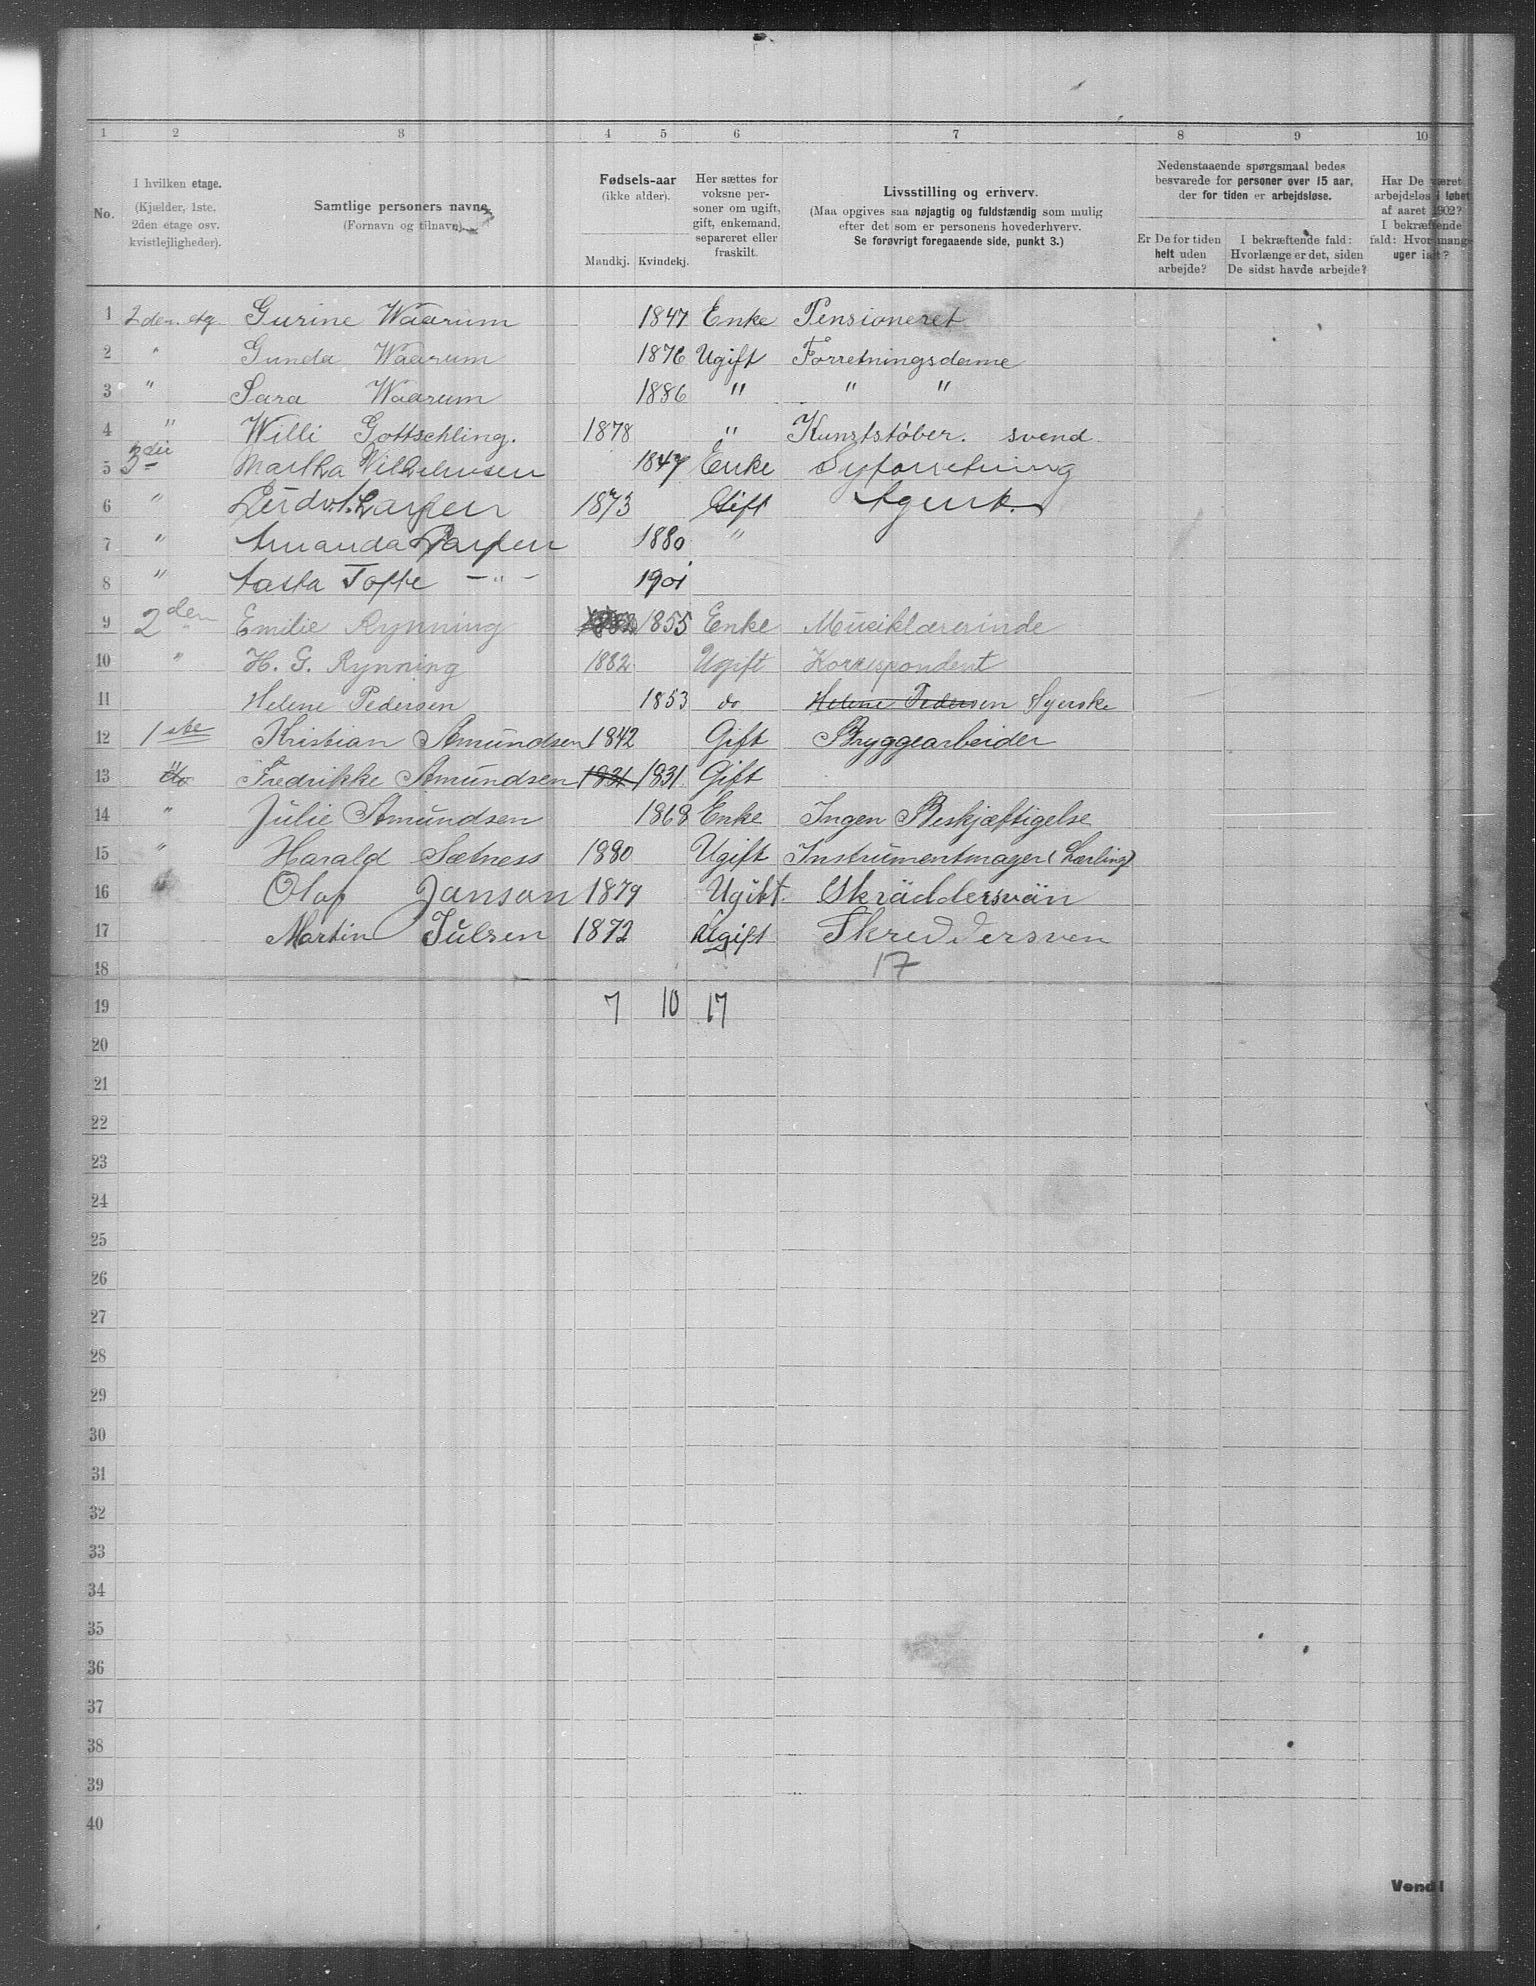 1 2 3 4 5 6 7 8 9 10
No.
I hvilken etage.
(Kjælder, 1ste.
2den etage osv.
kvistlejligheder).
Samtlige personers navne
(Fornavn og tilnavn).
Fødsels-aar
(ikke alder).
Mandkj. Kvindekj.
Her sættes for
voksne per-
soner om ugift,
gift, enkemand,
separeret eller
fraskilt.
Livsstilling og erhverv.
(Maa opgives saa nøjagtig og fuldstændig som mulig
efter det som er personens hovederhverv.
Se forøvrigt foregaaende side, punkt 3.)
Nedenstaaende spørgsmaal bedes
besvarede for personer over 15 aar,
der for tiden er arbejdsløse.
Er De for tiden
helt uden
arbejde?
I bekræftende fald:
Hvorlænge er det, siden
De sidst havde arbejde?
Har De været
arbejdsløs i løbet
af aaret 1902?
I bekræftende
fald: Hvor mang-
uger ialt?
1 2den etg. Gurine Waarum 1847 Enke Pensioneret
2 " Gunda Waarum 1876 Ugift Forretningsdame
3 " Sara Waarum 1886 " " "
4 " Willi Gottschling. 1878 " Kunststøber. svend.
5 3die Martha Vilhelmsen 1847 Enke Syforretning
6 " Ludv. Larsen 1873 Gift Agent.
7 " Amanda Larsen 1880 "
8 " Aasta Tofte - " - 1901
9 2den " Emilie Rynning 1855 Enke Musiklærerinde
10 " H. G. Rynning 1882 Ugift Korrespondent
11 Helene Pedersen 1853 do Helene Pedersen Syerske
12 1ste Kristian Amundsen 1842 Gift Bryggearbeider
13 do Fredrikke Amundsen 1831 1831 Gift
14 " Julie Amundsen 1868 Enke Ingen Beskjæftigelse
15 " Harald Sætness 1880 Ugift Instrumentmager (Lærling)
16 Olof Janson 1879 Ugift. Skräddersvän
17 Martin Julsen 1872 Ugift Skreddersven
18 17
19 7 10 17
20
21
22
23
24
25
26
27
28
29
30
31
32
33
34
35
36
37
38
39
40
Vend!